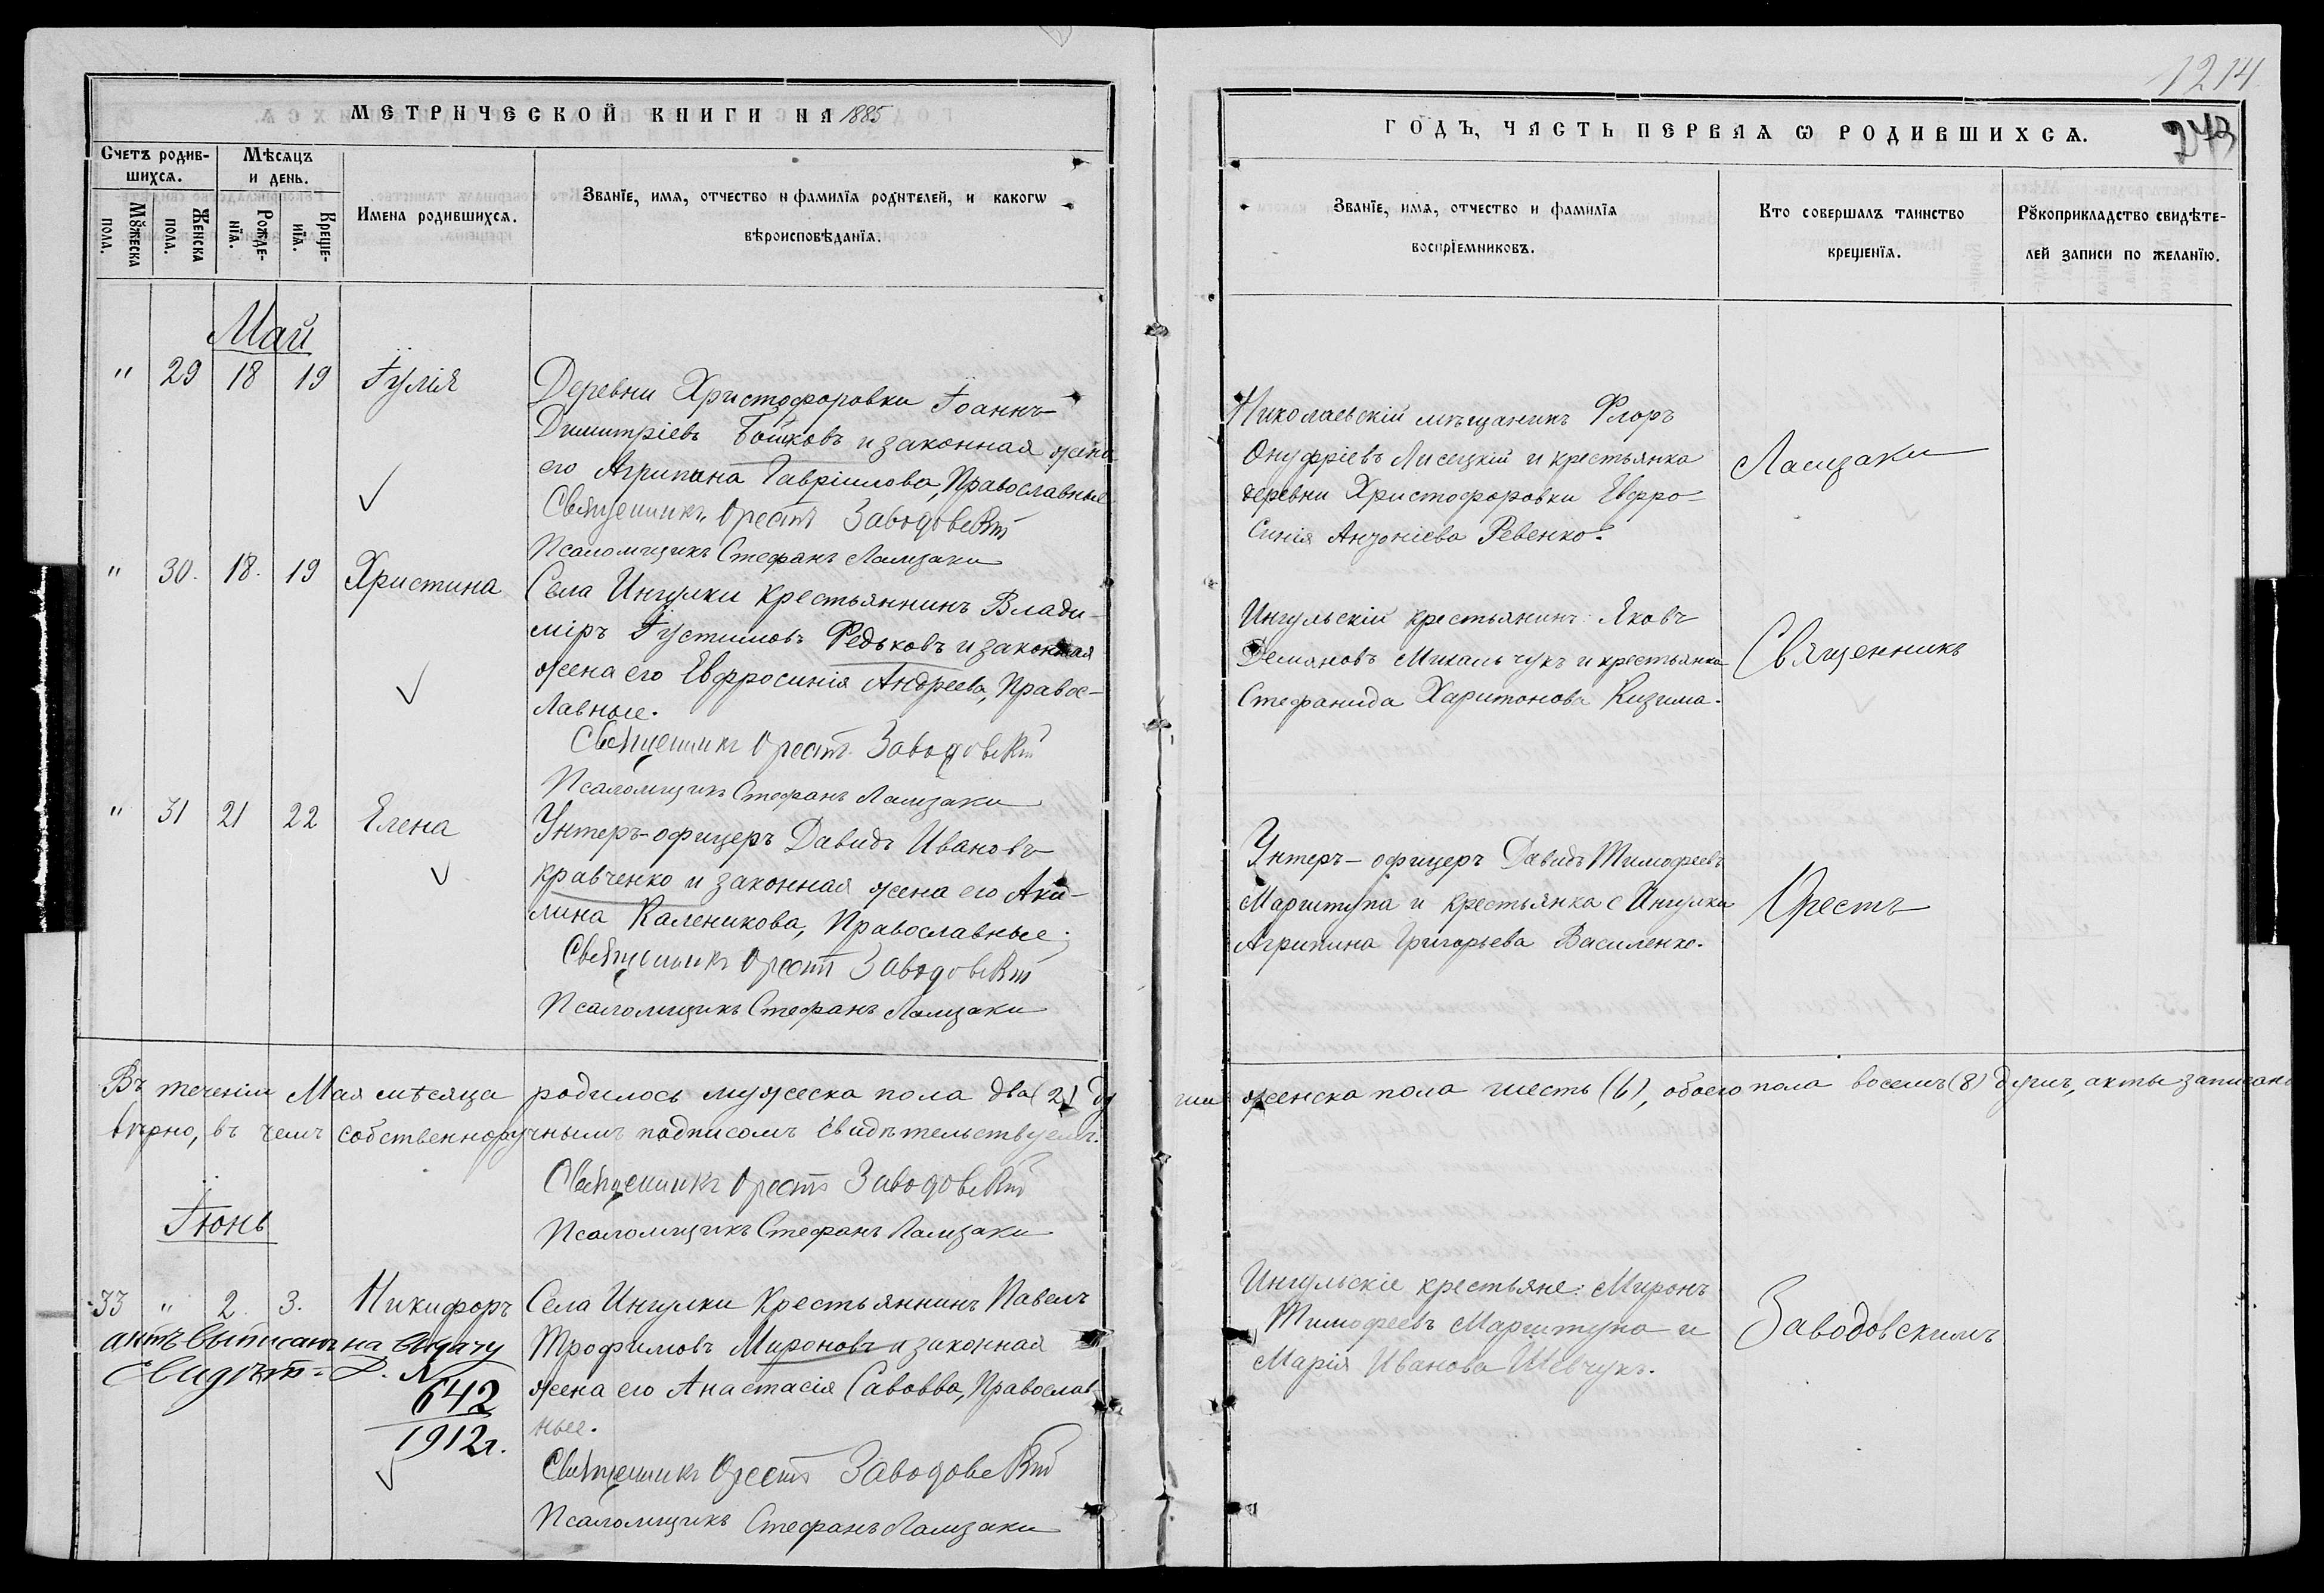 1214
МЕТРИЧЕСКОЙ КНИГИ НА 1885
ГОДЪ, ЧАСТЬ ПЕРВАѦ Ѡ РОДИВШИХСѦ.
243
Счетъ родив-
шихсѧ.
Мѣсѧцъ
и день.
Мꙋжеска
пола.
Женска
пола.
Рожде-
нїѧ.
Креще-
нїѧ.
Имена родившихсѧ.
Званїе, имѧ, отчество и фамилїѧ родителей, и какогѡ
вѣроисповѣданїѧ.
Званїе, имѧ, отчество и фамилїѧ
воспрїемниковъ.
Кто совершалъ таинство
крещенїѧ.
Рꙋкоприкладство свидѣте-
лей записи по желанїю.
Май
" 29 18 19 Іулія
Деревни Христофоровки Іоаннъ
Димитріевъ Бошковъ и законная жена
его Агрипина Гавріилова, Православные
Священникъ Орестъ Заводовскій
Псаломщикъ Стефанъ Ламзаки
Николаевскій мѣщанинъ Флоръ
Онуфріевъ Лисецкій и крестьянка
деревни Христофоровки Евфро-
синія Антоніева Ревенко.
Ламзаки
" 30. 18. 19 Христина
Села Ингулки крестьяннинъ Влади-
міръ Іустиновъ Редьковъ и законная
жена его Евфросинія Андреева, Правос-
лавные.
Священникъ Орестъ Заводовскій
Псаломщикъ Стефанъ Ламзаки
Ингульскій крестьянинъ Яковъ
Демяновъ Михальчукъ и крестьянка
Стефанида Харитонова Кизима.
Священникъ
" 31 21 22 Елена
Унтеръ-офицеръ Давидъ Ивановъ
Кравченко и законная жена его Аки-
лина Каленикова, Православные;
Священникъ Орестъ Заводовскій
Псаломщикъ Стефанъ Ламзаки
Унтеръ-офицеръ Давидъ Тимофеевъ
Маргитупа и крестьянка с Ингулки
Агрипина Григорьева Василенко.
Орестъ
Въ теченіи Мая мѣсяца родилось мужеска пола два (2) ду
ши женска пола шесть (6), обоего пола восемъ (8) душъ, акты записано
вѣрно, въ чемъ собственноручнымъ подписомъ свидѣтельствуемъ.
Священникъ Орестъ Заводовскій
Псаломщикъ Стефанъ Ламзаки
Іюнь
33 " 2. 3. Никифоръ
актъ выписанъ на выдачу
свидѣт= №
642
1912г.
Села Ингулки Крестьяннинъ Павелъ
Трофимовъ Мироновъ и законная
жена его Анастасія Савовва, Православ
ные.
Священникъ Орестъ Заводовскій
Псаломщикъ Стефанъ Ламзаки
Ингульскіе крестьяне: Миронъ
Тимофеевъ Маргитупа и
Марія Иванова Шевчукъ.
Заводовскимъ